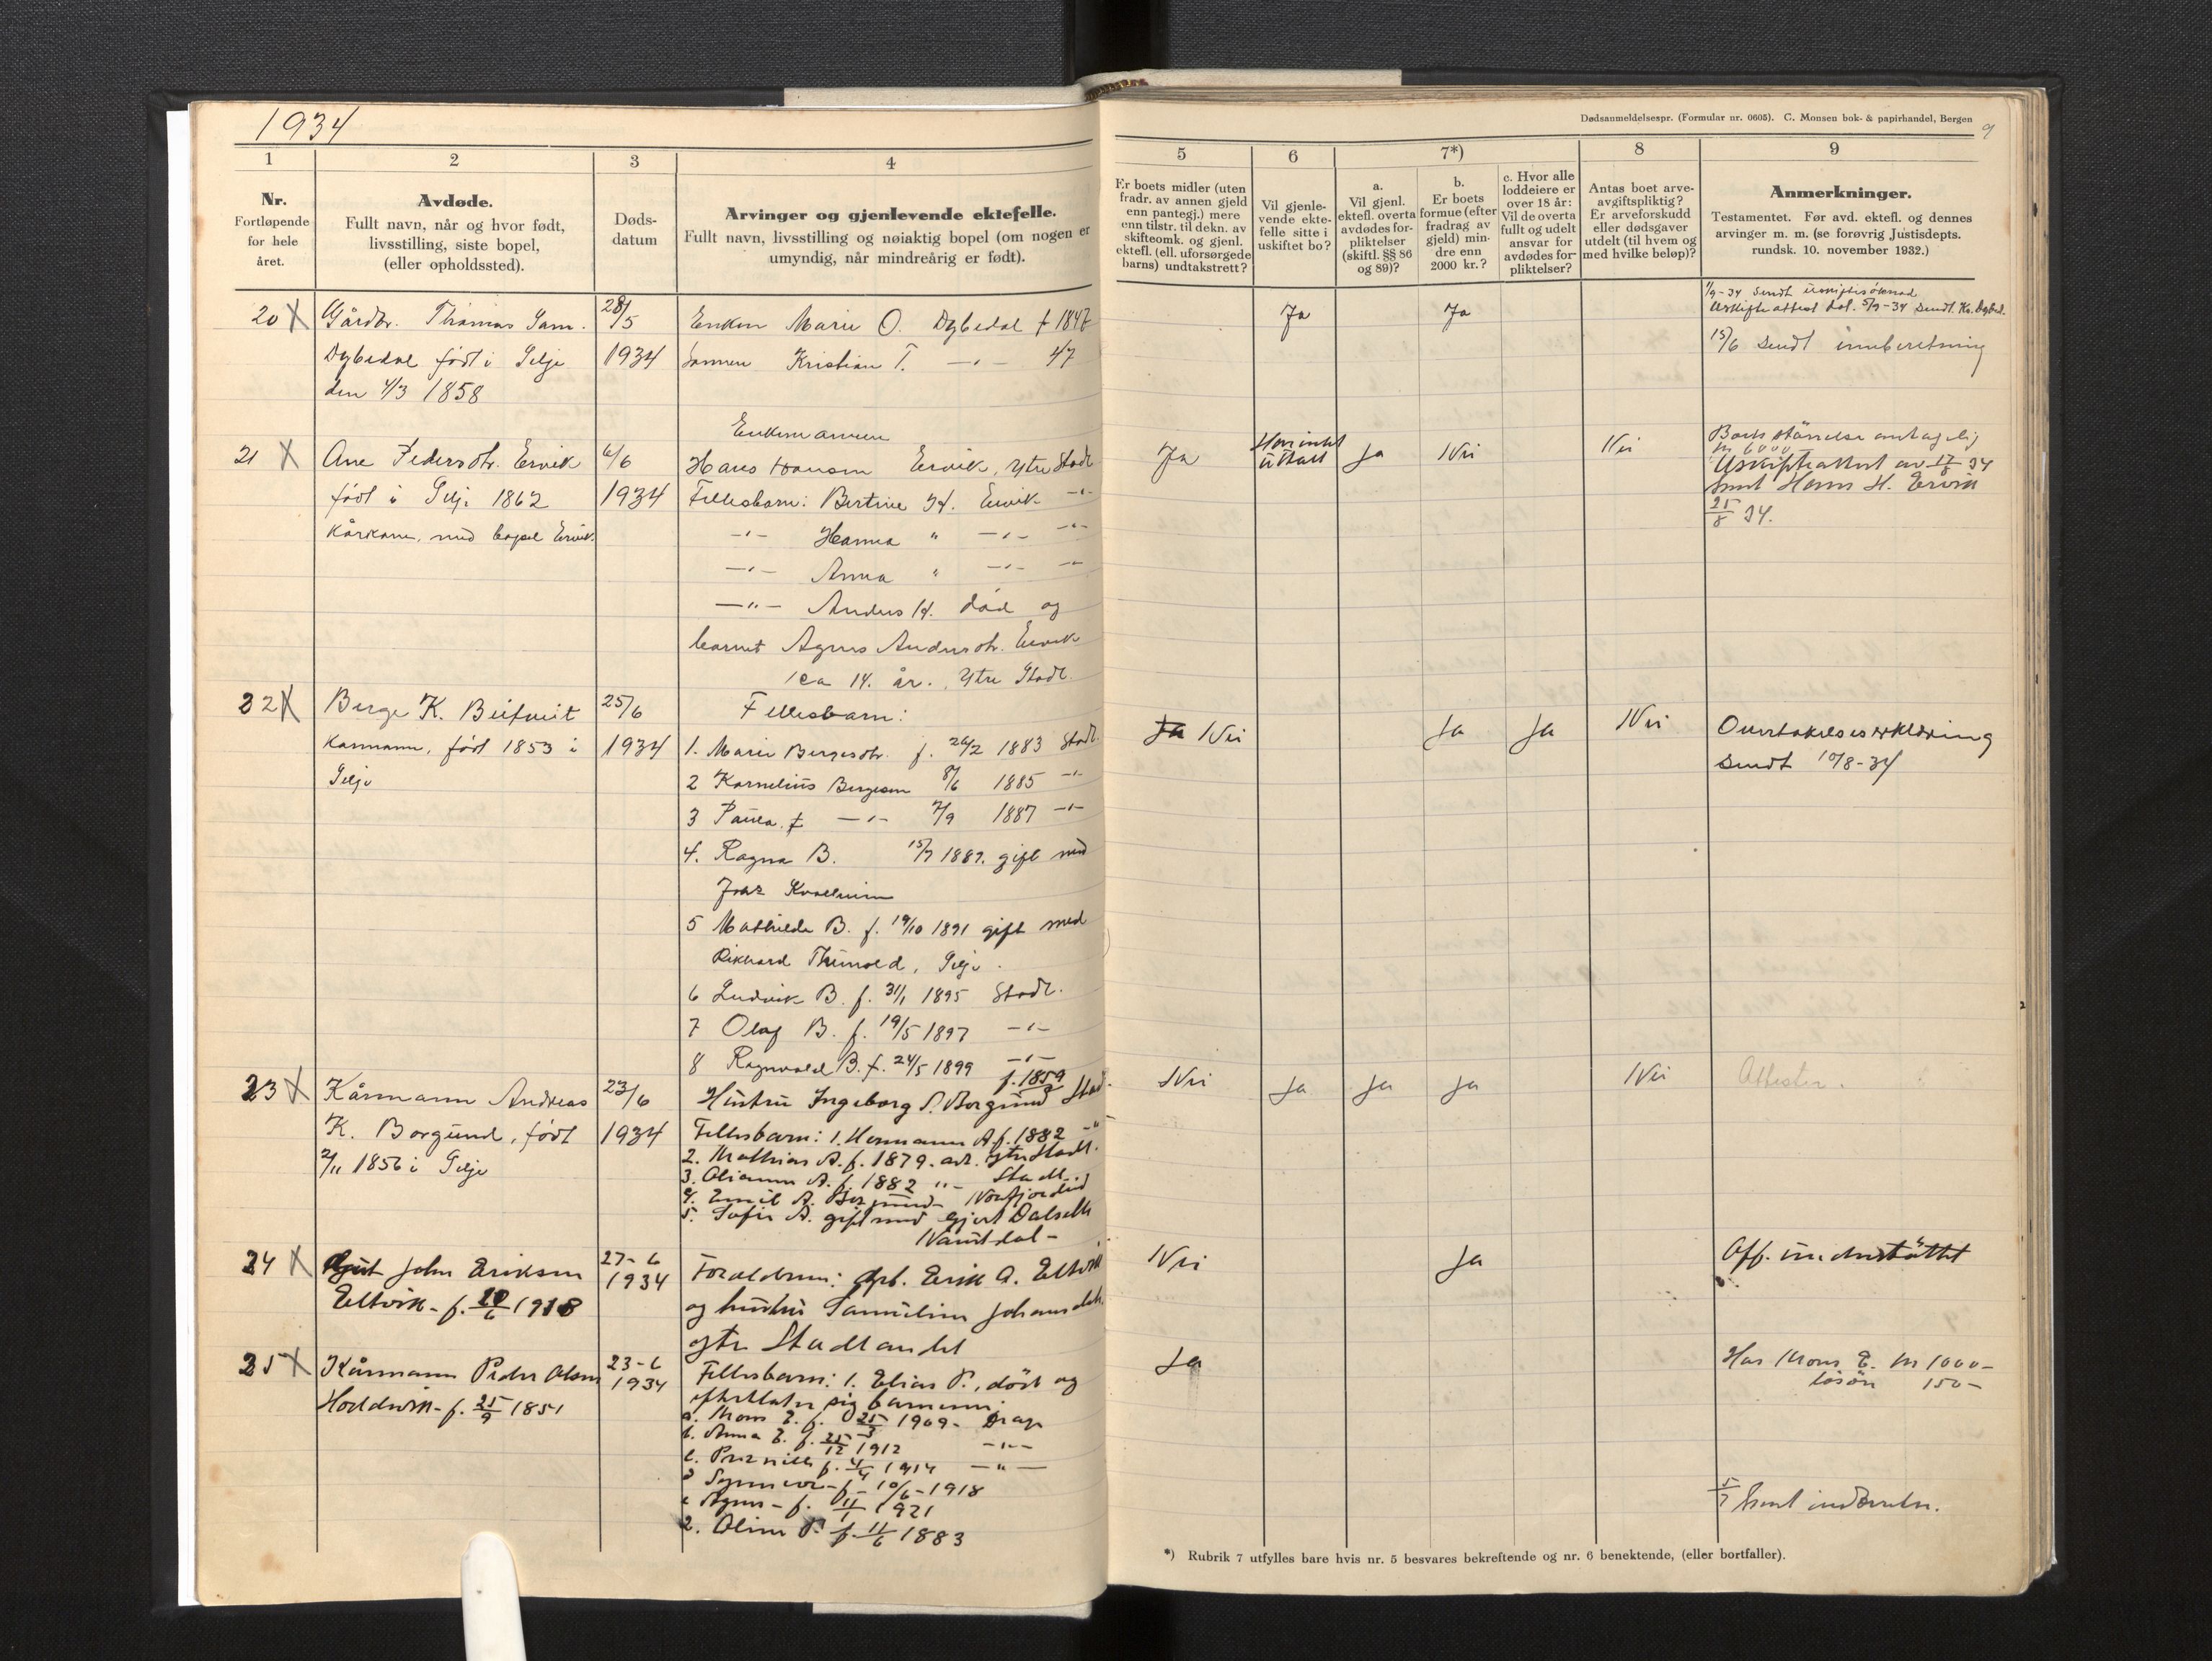 1934
1
2
3
4
Nr.
Fortløpende
for hele
året.
Avdøde.
Fullt navn, når og hvor født,
livsstilling, siste bopel,
(eller opholdssted).
Døds-
datum
Arvinger og gjenlevende ektefelle.
Fullt navn, livsstilling og nøiaktig bopel (om nogen er
umyndig, når mindreårig er født).
20 X
Gårdbr. Thomas Sam.
Dybedal født i Selje
den 4/3 1858
28/5
1934
Enken Marie O. Dybedal f 1847
Sønnen Kristian T. —"— 47
21 X
Ane Pedersdtr. Ervik
født i Selje 1862
Kårkone, med bopel Ervik.
6/6
1934
Enkemannen
Hans Hansen Ervik, Ytre Stadl
Fellesbarn: Bertine H. Ervik —"—
—"— Hanna " —"— —"—
—"— Anna " —"— —"—
—"— Anders H. død og
barnet Agnes Andersdtr. Ervik
ca 14. år. Ytre Stadl.
22 X
Berge K. Beitveit
Kårmann, født 1853 i
Selje
25/6
1934
Fellesbarn:
1. Marie Bergesdtr. f. 26/2 1883 Stadl.
2 Kornelius Bergesen 8/6 1885 —"—
3 Paula f —"— 7/9 1887 —"—
4. Ragna B. 15/7 1889. gift med
Ivar Kvalheim
5 Mathilde B. f. 19/10 1891 gift med
Rikhard Thunold, Selje.
6 Ludvik B. f. 31/1 1895 Stadl.
7 Olaf B. f. 19/5 1897 —"—
8 Ragnvald B. f. 24/5 1899 —"—
23 X
Kårmann Andreas
K. Borgund, født
2/11 1856 i Selje
23/6
1934
f. 1859
Hustru Ingeborg S. Borgund Stad.
Fellesbarn: 1. Hermann A f. 1882 —"
2. Mathias A. f. 1879. adr. ytre Stadl.
3. Oliamm A. f. 1882 "— Stadl.
4. Emil A. Borgund Nordfjordeid
5. Sofie A. gift med Gjert Dalseth
Namdal —
24 X
Gut John Eriksen
Eltvik - f. 10/6 1918
27-6
1934
Foreldrene: gbr. Erik A. Eltvik
og hustru Samueline Johansdtr.
ytre Stadlandet
25 X
Kårmann Peder Olsen
Hoddevik - f. 25/9 1851
23-6
1934
Fellesbarn: 1. Elias P., død og
efterlater sig barnene:
a. Mons E. f. 25/3 1909 - Drage
b. Anna E. f. 25/12 1912 —"—
c. Pernille f. 4/4 1914 —"—
d Synnøve - f. 10/6 - 1918
e Agnes - f. 11/1 1921
2. Oline P. f. 11/6 1883
Dødsanmeldelsespr. (Formular nr. 0605). C. Monsen bok- & papirhandel, Bergen
9
5
6
7*)
8
9
Er boets midler (uten
fradr. av annen gjeld
enn pantegj.) mere
enn tilstr. til dekn. av
skifteomk. og gjenl.
ektefl. (ell. uforsørgede
barns) undtakstrett?
Vil gjenle-
vende ekte-
felle sitte i
uskiftet bo?
a.
Vil gjenl.
ektefl. overta
avdødes for-
pliktelser
(skiftl. §§ 86
og 89)?
b.
Er boets
formue (efter
fradrag av
gjeld) min-
dre enn
2000 kr.?
c. Hvor alle
loddeiere er
over 18 år:
Vil de overta
fullt og udelt
ansvar for
avdødes for-
pliktelser?
Antas boet arve-
avgiftspliktig?
Er arveforskudd
eller dødsgaver
utdelt (til hvem og
med hvilke beløp)?
Anmerkninger.
Testamentet. Før avd. ektefl. og dennes
arvinger m. m. (se forøvrig Justisdepts.
rundsk. 10. november 1932.)
Ja
Ja
1/9-34 sendt uskiftesøknad
Uskifteattest dat. 5/9-34 sendt Kr. Dybed.
15/6 sendt innberetning
Ja
Har intet
uttalt
Ja
Nei
Nei
Boets størrelse antagelig
kr 6000
Uskifteattest av 17/8 34
sendt Hans H. Ervik
25/8 34.
Ja Nei
Ja
Ja
Nei
Overtakelseserklæring
sendt 10/8-34
Nei
Ja
Ja
Ja
Nei
Attester.
Nei
Ja
Off. understøttet
Ja
Har Mons E. kr 1000-
løsøre 150-
5/7 sendt innberetn.
*) Rubrik 7 utfylles bare hvis nr. 5 besvares bekreftende og nr. 6 benektende, (eller bortfaller).